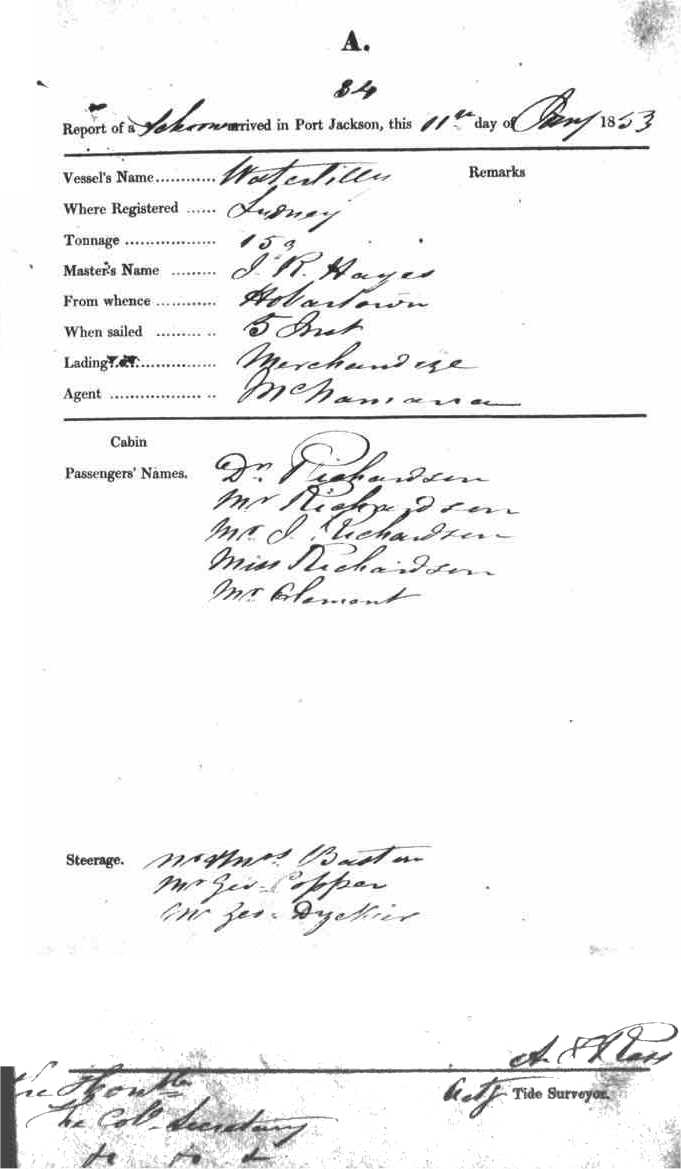 A.
84
Report of a Schooner arrived in Port Jackson, this 11th day of Jany 1853
Vessel's Name............ Waterlilly Remarks
Where Registered ...... Sydney
Tonnage .................. 153
Master's Name ......... J. R. Hayes
From whence ............ Hobartown
When sailed ............ 5 Inst
Lading .................. Merchandize
Agent ..................... McNamara
Cabin
Passengers' Names. Dr. Richardson
Mr Richardson
Mr. J. Richardson
Miss Richardson
Mr Clemont
Steerage. Mr & Mrs
Mr Geo. Copper
Mr Geo.
A Ross
Actg Tide Surveyor.
The Honble
The Col. Secretary